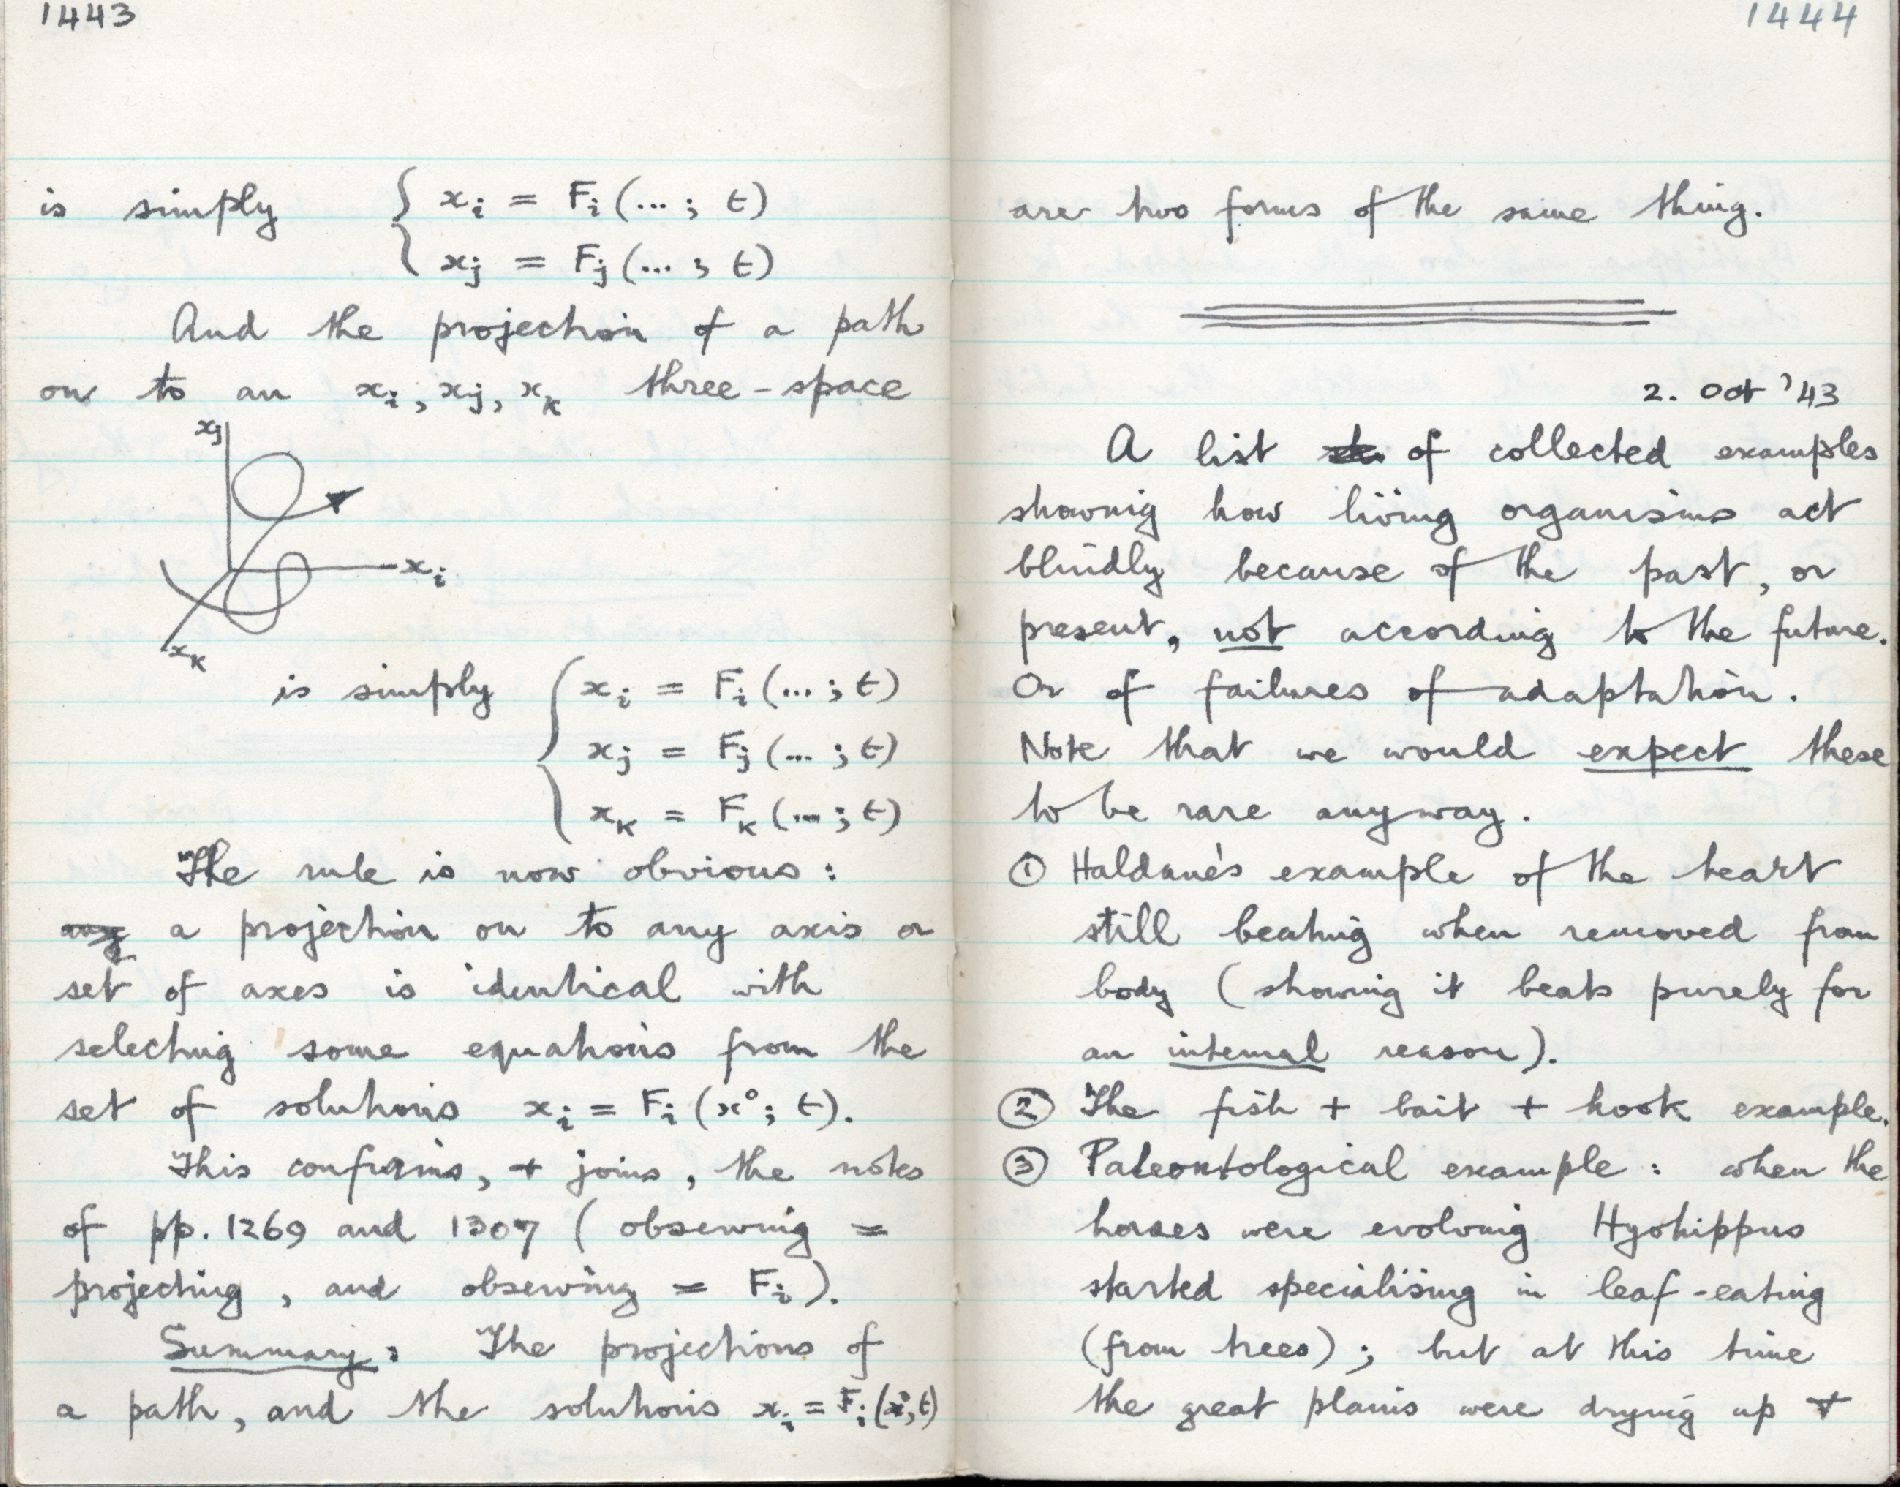 1443
is simply { xᵢ = Fᵢ (... ; t)
xⱼ = Fⱼ (... ; t)
And the projection of a path
on to an xᵢ, xⱼ, xₖ three-space
xⱼ
xᵢ
xₖ
is simply { xᵢ = Fᵢ (... ; t)
xⱼ = Fⱼ (... ; t)
xₖ = Fₖ (... ; t)
The rule is now obvious :
any a projection on to any axis or
set of axes is identical with
selecting some equations from the
set of solutions xᵢ = Fᵢ (x°; t).
This confirms, + joins, the notes
of pp. 1269 and 1307 ( observing =
projecting, and observing = Fᵢ ).
Summary: The projections of
a path, and the solutions xᵢ = Fᵢ (x°; t)
1444
are two forms of the same thing.
2. Oct '43
A list of collected examples
showing how living organisms act
blindly because of the past, or
present, not according to the future.
Or of failures of adaptation.
Note that we would expect these
to be rare anyway.
① Haldane's example of the heart
still beating when removed from
body ( showing it beats purely for
an internal reason ).
② The fish + bait + hook example.
③ Paleontological example : when the
horses were evolving Hyohippus
started specialising in leaf-eating
(from trees) ; but at this time
the great plains were drying up +